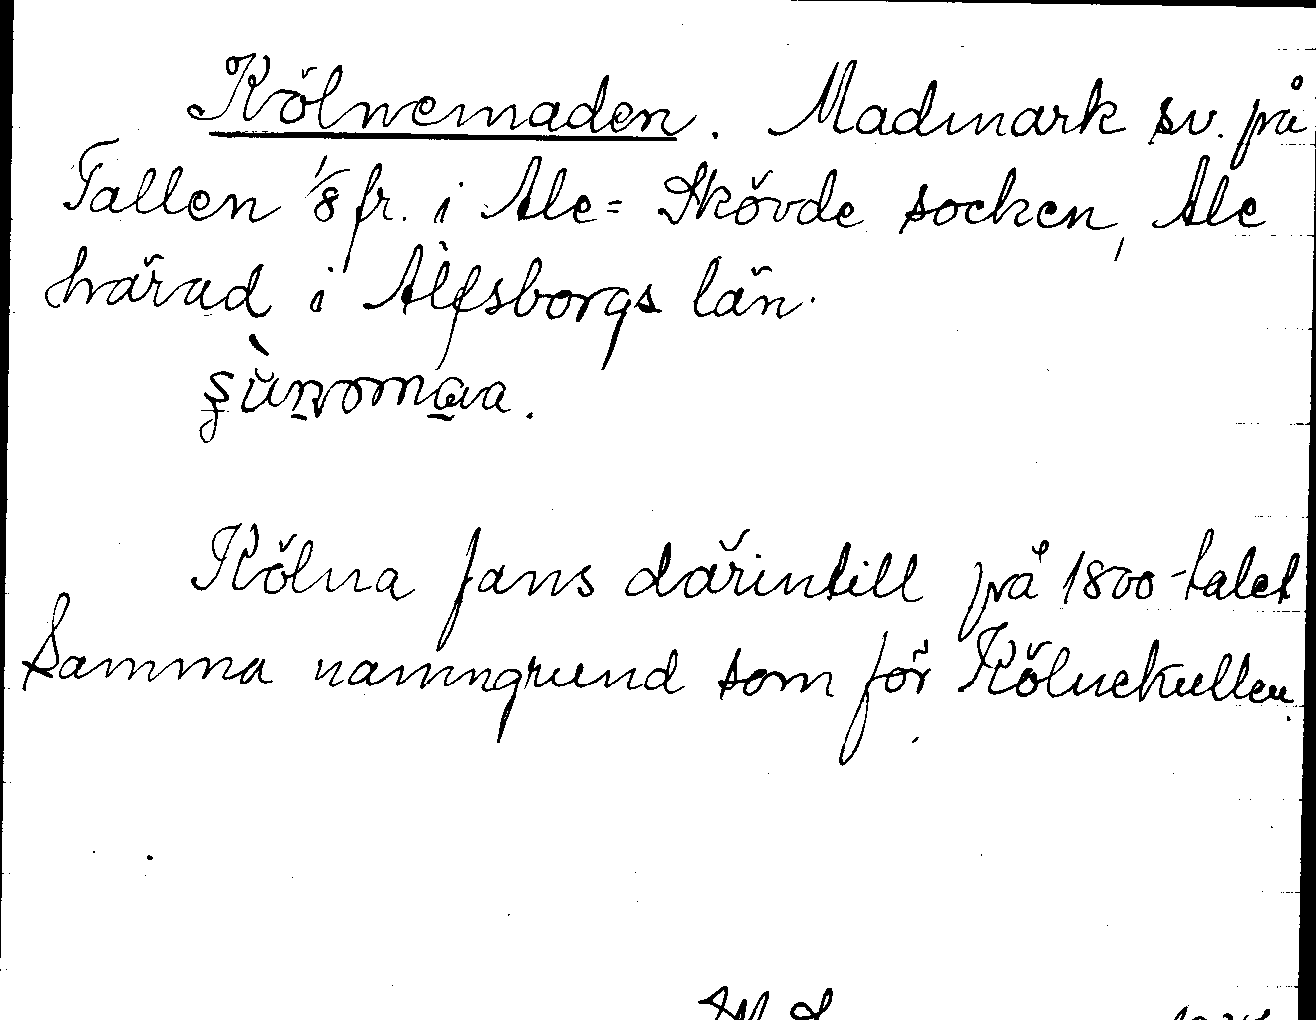 Kölnemaden. Madmark sv. på
Tallen 1/8 fr. i Ale=Skövde socken, Ale
härad i Älfsborgs län.
Kölna fans därintill på 1800-talet
Samma namngrund som för Kölnekullen.